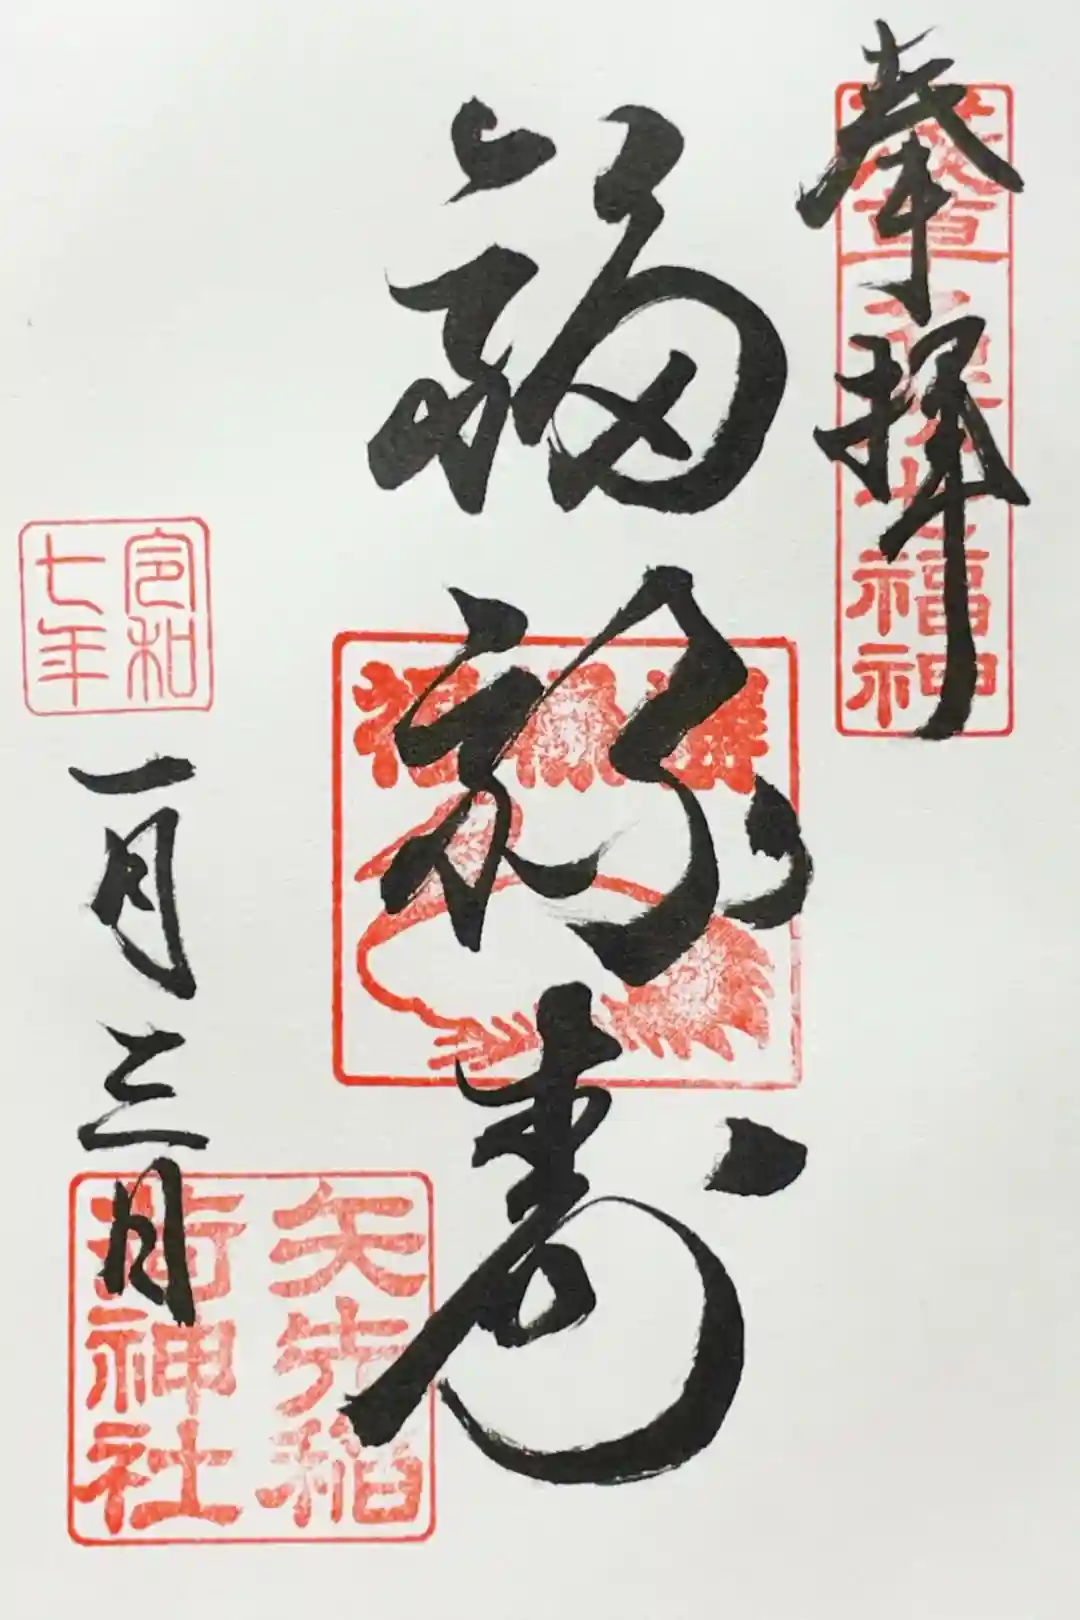 奉拝
七福神
福禄寿
令和
七年
一月三日
矢先稲
荷神社